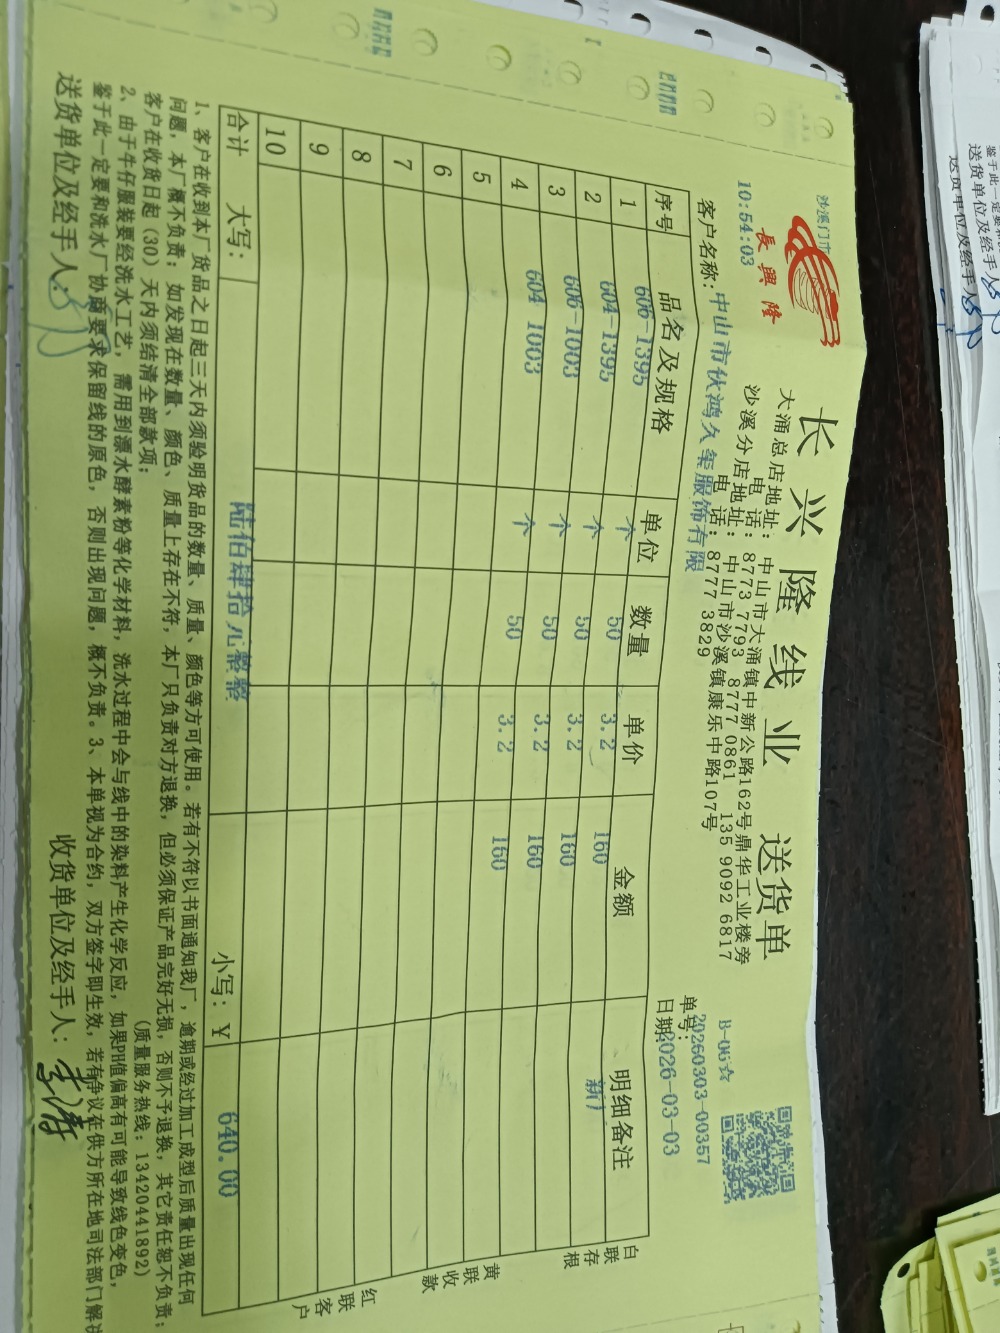 長興隆
沙溪门市
10:54:03
长兴隆线业 送货单
大涌总店地址:中山市大涌镇中新公路162号鼎华工业楼旁
电话:8773 7793 8777 0861 135 9092 6817
沙溪分店地址:中山市沙溪镇康乐中路107号
电话:8777 3829
B-06☆
单号:20260303-00357
日期:2026-03-03
客户名称:中山市伙鸿久玺服饰有限
序号 品名及规格 单位 数量 单价 金额 明细备注
1 606-1395 个 50 3.2 160 新厂
2 604-1395 个 50 3.2 160
3 606-1003 个 50 3.2 160
4 604-1003 个 50 3.2 160
5
6
7
8
9
10
合计 大写: 陆佰肆拾元整整 小写:¥ 640.00
白联存根
黄联收款
红联客户
1、客户在收到本厂货品之日起三天内须验明货品的数量、质量、颜色等方可使用。若有不符以书面通知我厂,逾期或经过加工成型后质量出现任何
问题,本厂概不负责;如发现在数量、颜色、质量上存在不符,本厂只负责对方退换,但必须保证产品完好无损,否则不予退换,其它责任恕不负责;
客户在收货日起(30)天内须结清全部款项; (质量服务热线:13420441892)
2、由于牛仔服装要经洗水工艺,需用到漂水酵素粉等化学材料,洗水过程中会与线中的染料产生化学反应,如果PH值偏高有可能导致线色变色,
鉴于此一定要和洗水厂协商要求保留线的原色,否则出现问题,概不负责。3、本单视为合约,双方签字即生效,若有争议在供方所在地司法部门解决
送货单位及经手人: 收货单位及经手人:李涛
鉴于此一定要和
送货单位及经手人
送货单位及经手人